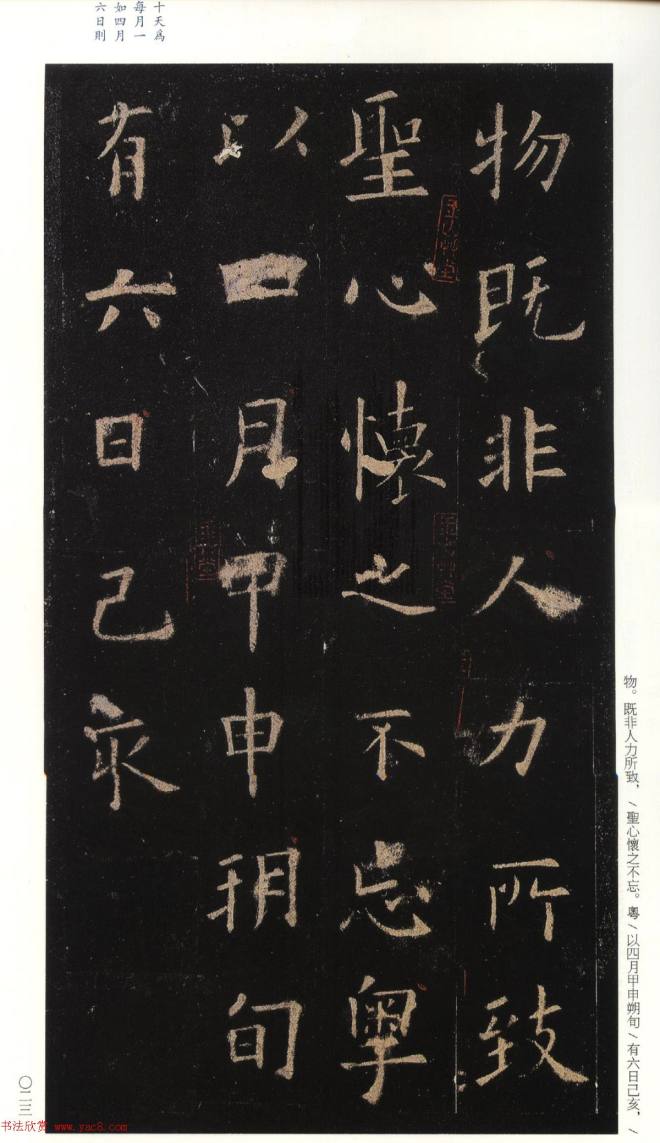 物既非人力所致
聖心懷之不忘粵
以四月甲申朔旬
有六日己亥
物。既非人力所致，\聖心懷之不忘。粵\以四月甲申朔旬\有六日己亥，\
十天為
每月一
如四月
六日則
〇二三
书法欣赏 www.yac8.com